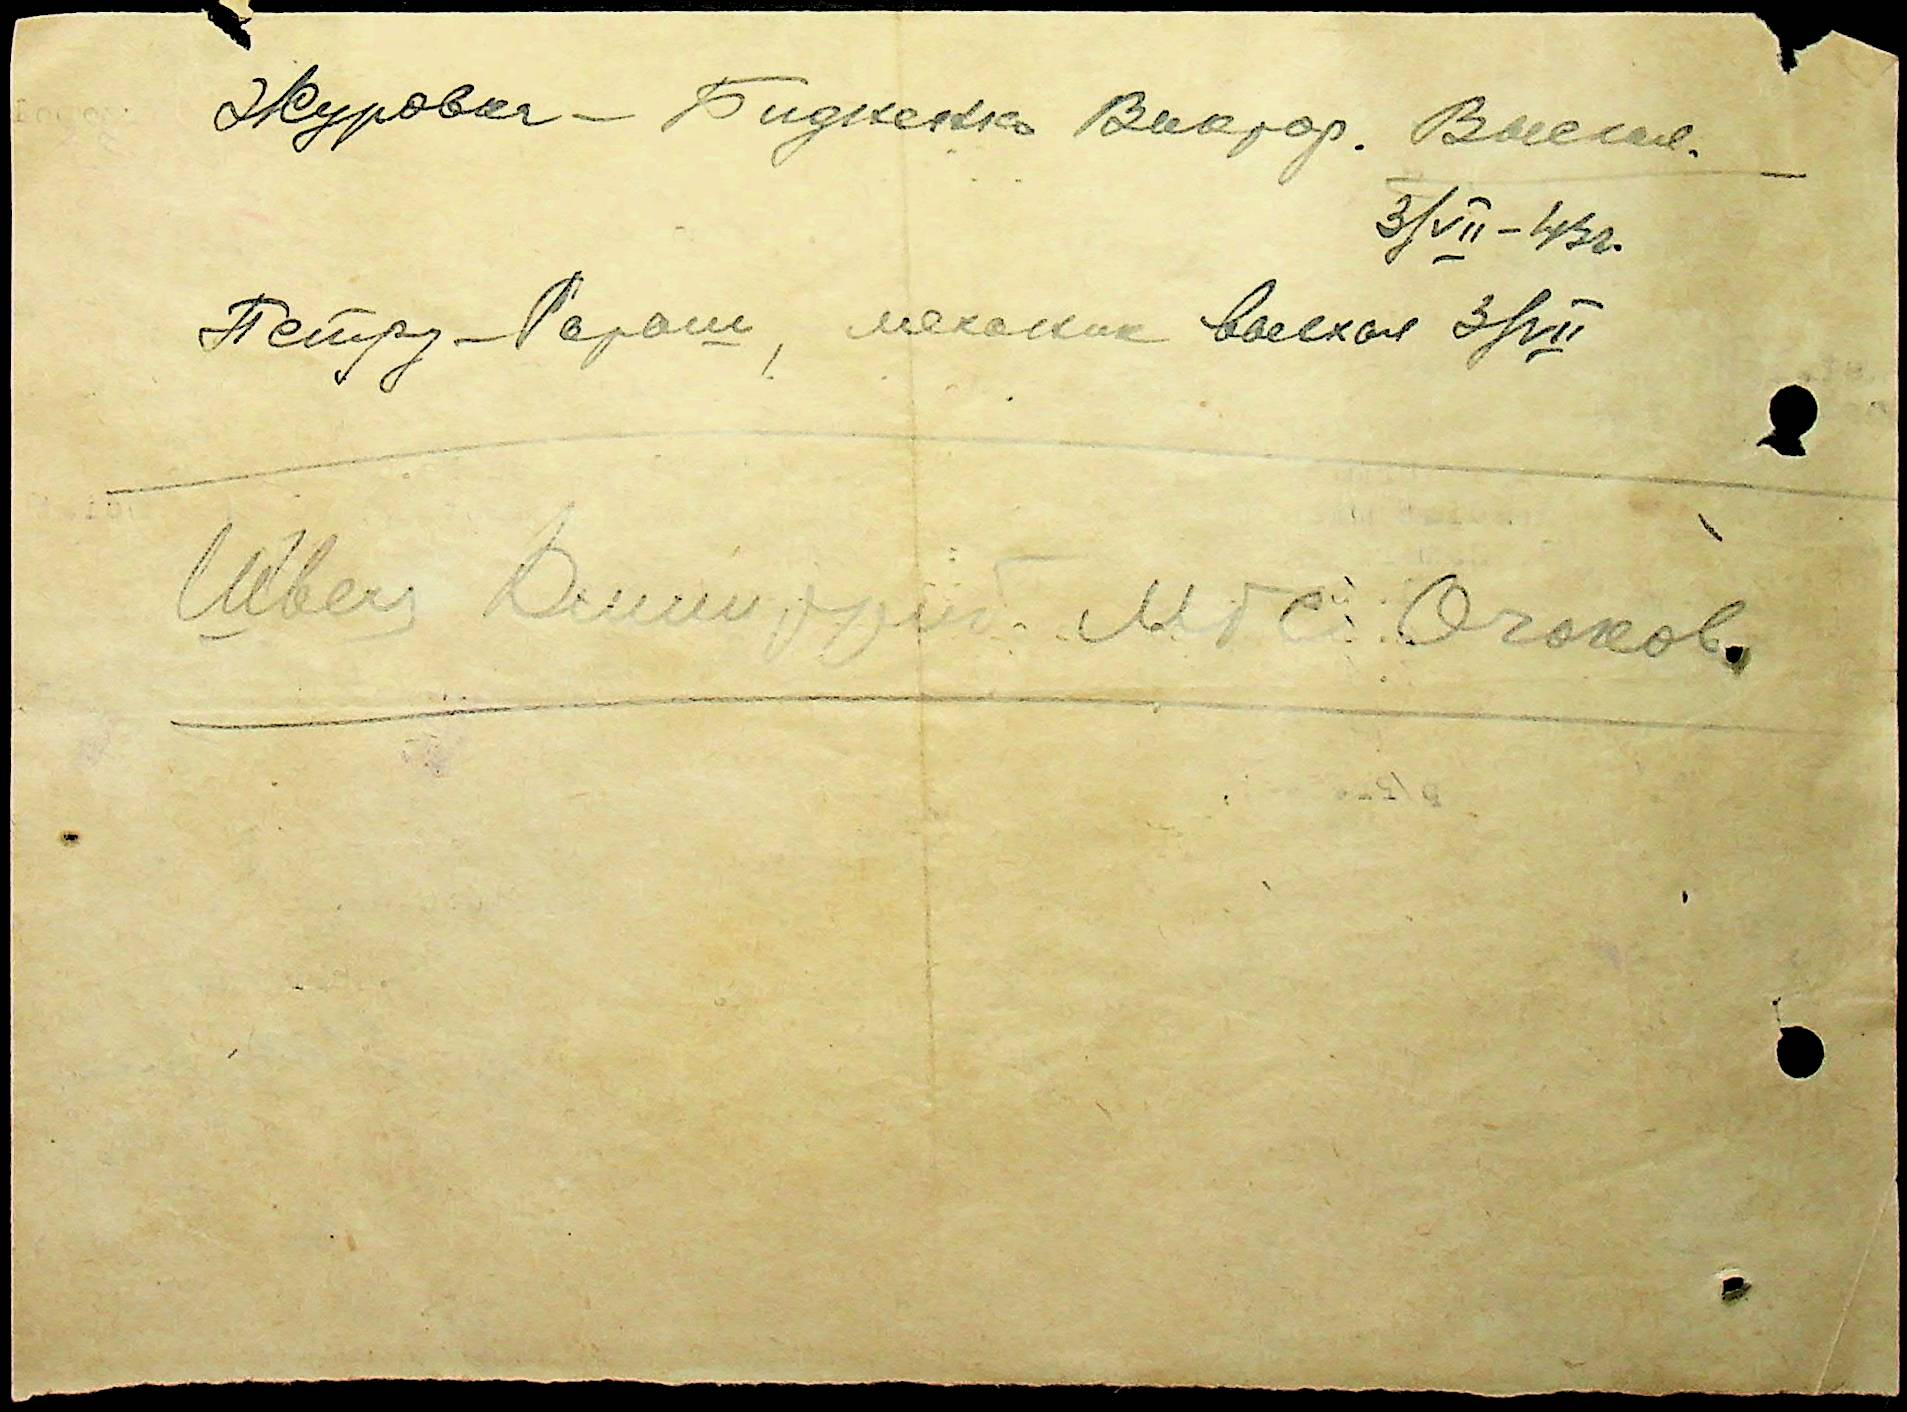 Журовка – Бидненко Виктор. Выехал.
3/VII – 43г.
Петру – Гараш, механик выехал 3/VII
Швец Дмитрий МТС Очаков.